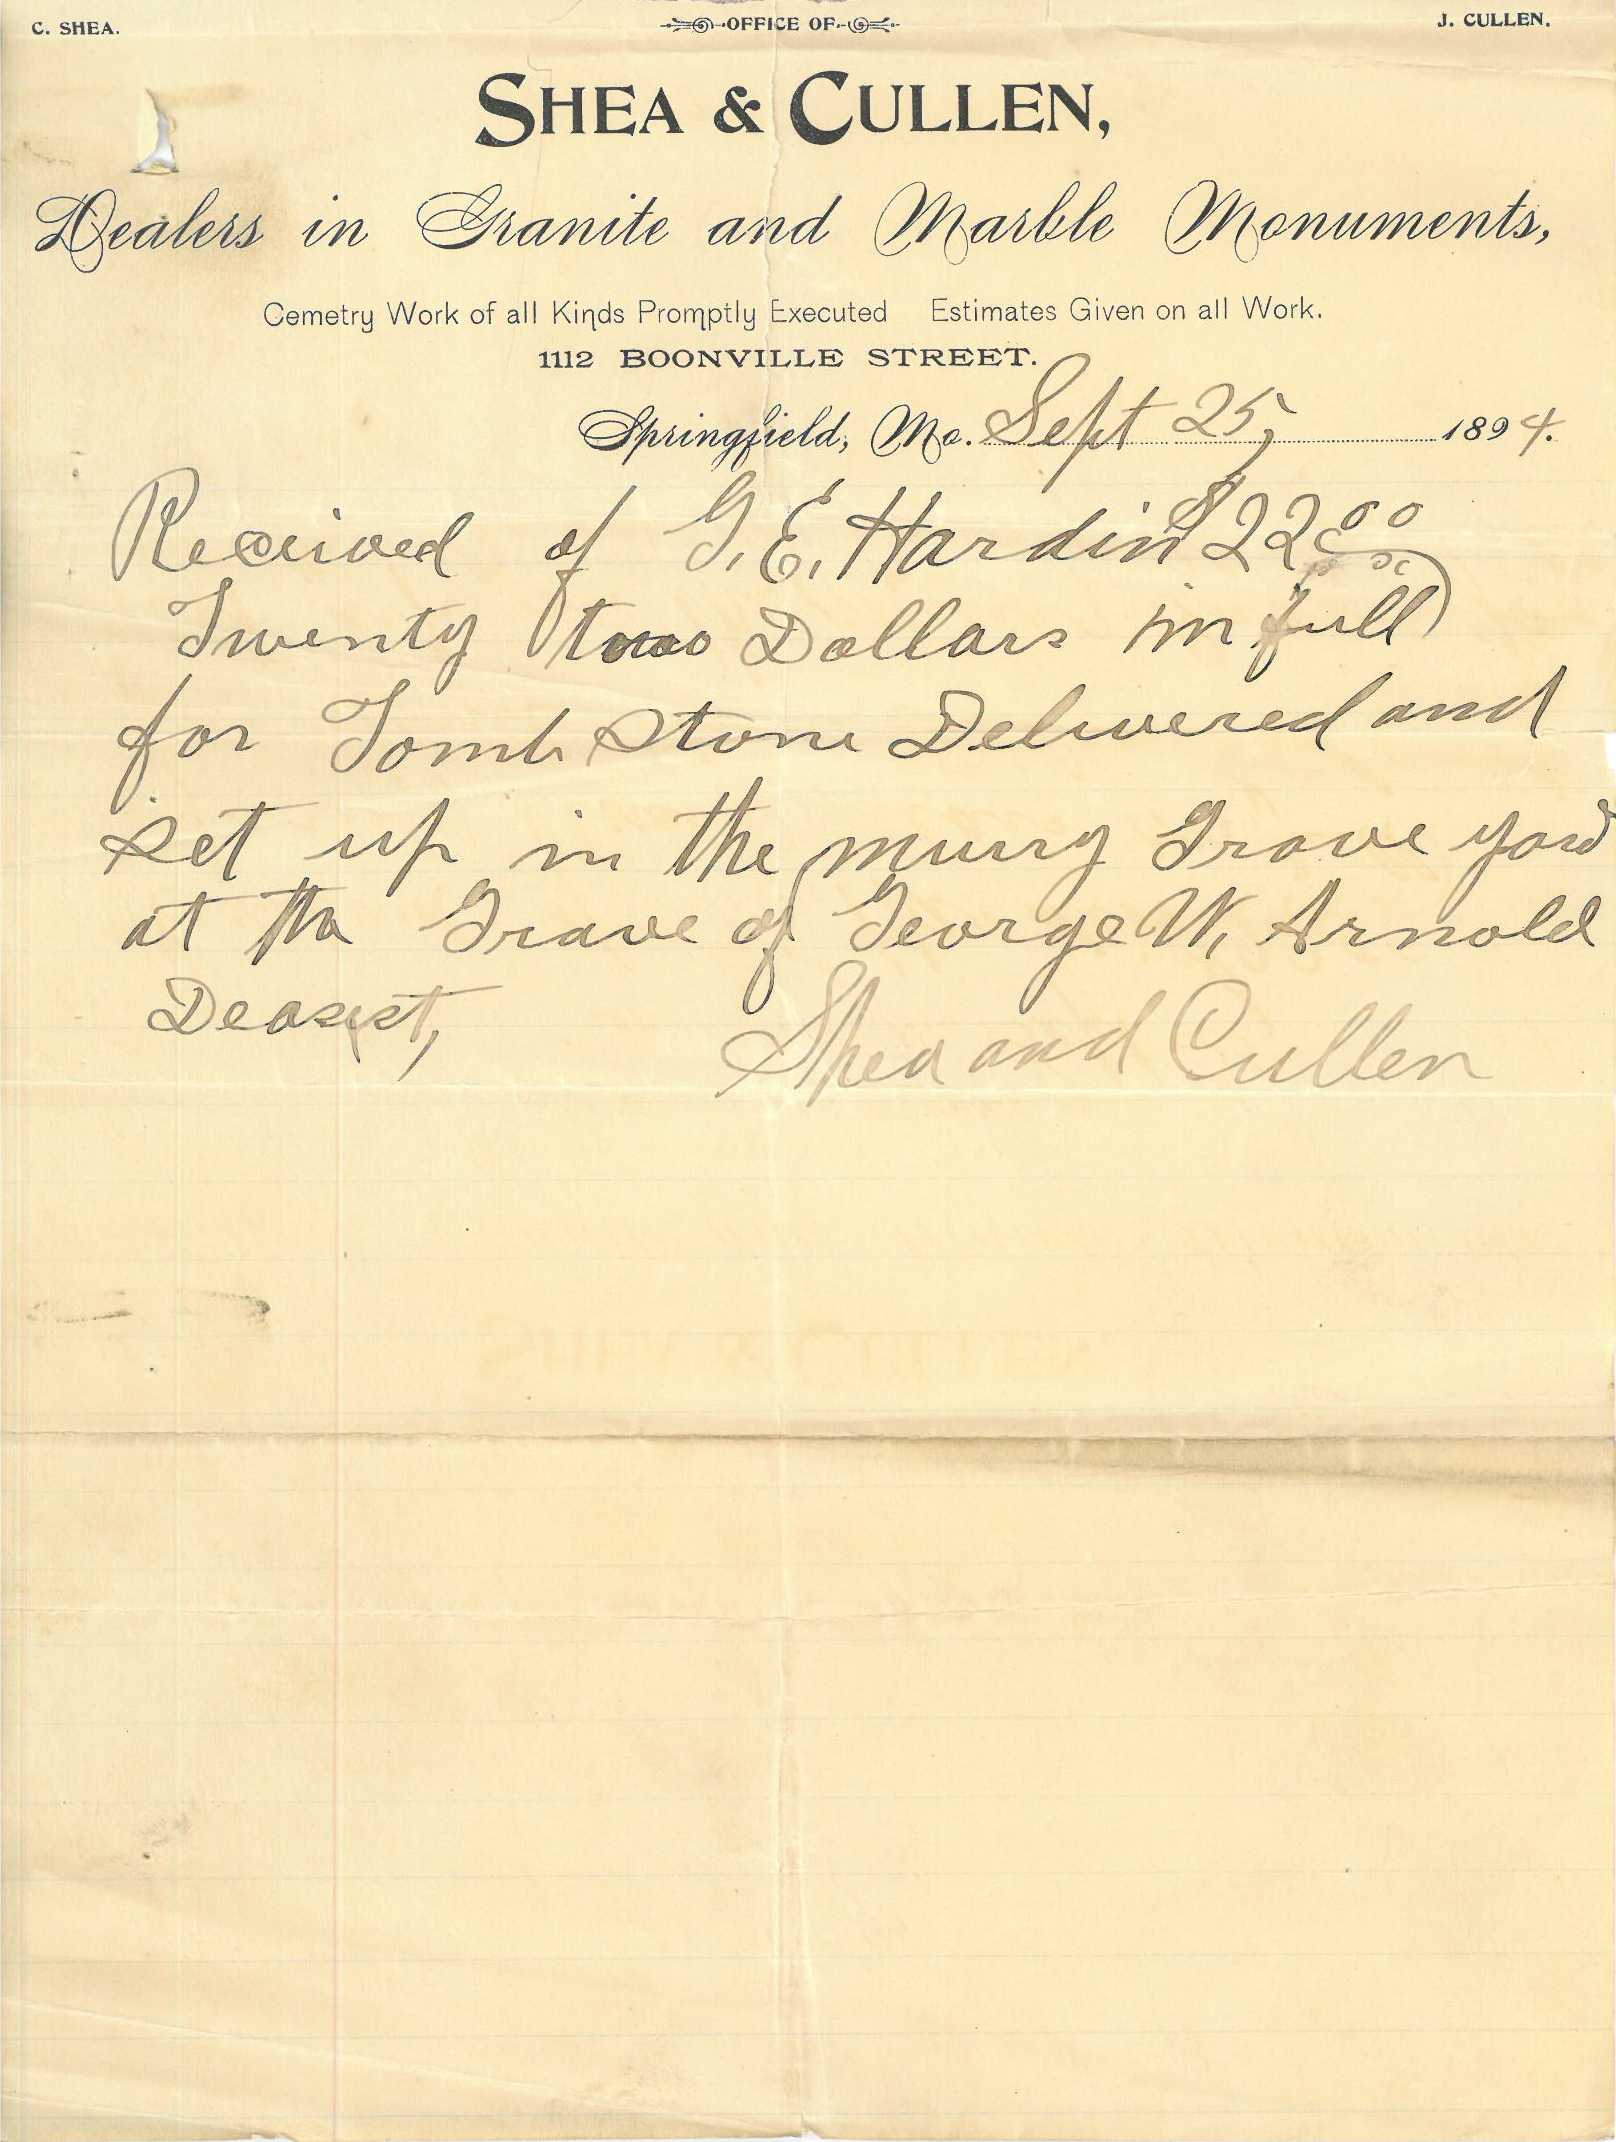 C. SHEA.
OFFICE OF
J. CULLEN.
SHEA & CULLEN,
Dealers in Granite and Marble Monuments,
Cemetry Work of all Kinds Promptly Executed Estimates Given on all Work.
1112 BOONVILLE STREET.
Springfield, Mo. Sept 25, 1894.
Received of G. E. Hardin $22.00
Twenty two Dollars in full
for Tomb stone Delivered and
set up in the murry Grave yard
at the Grave of George W. Arnold
Deasest,
Shea and Cullen